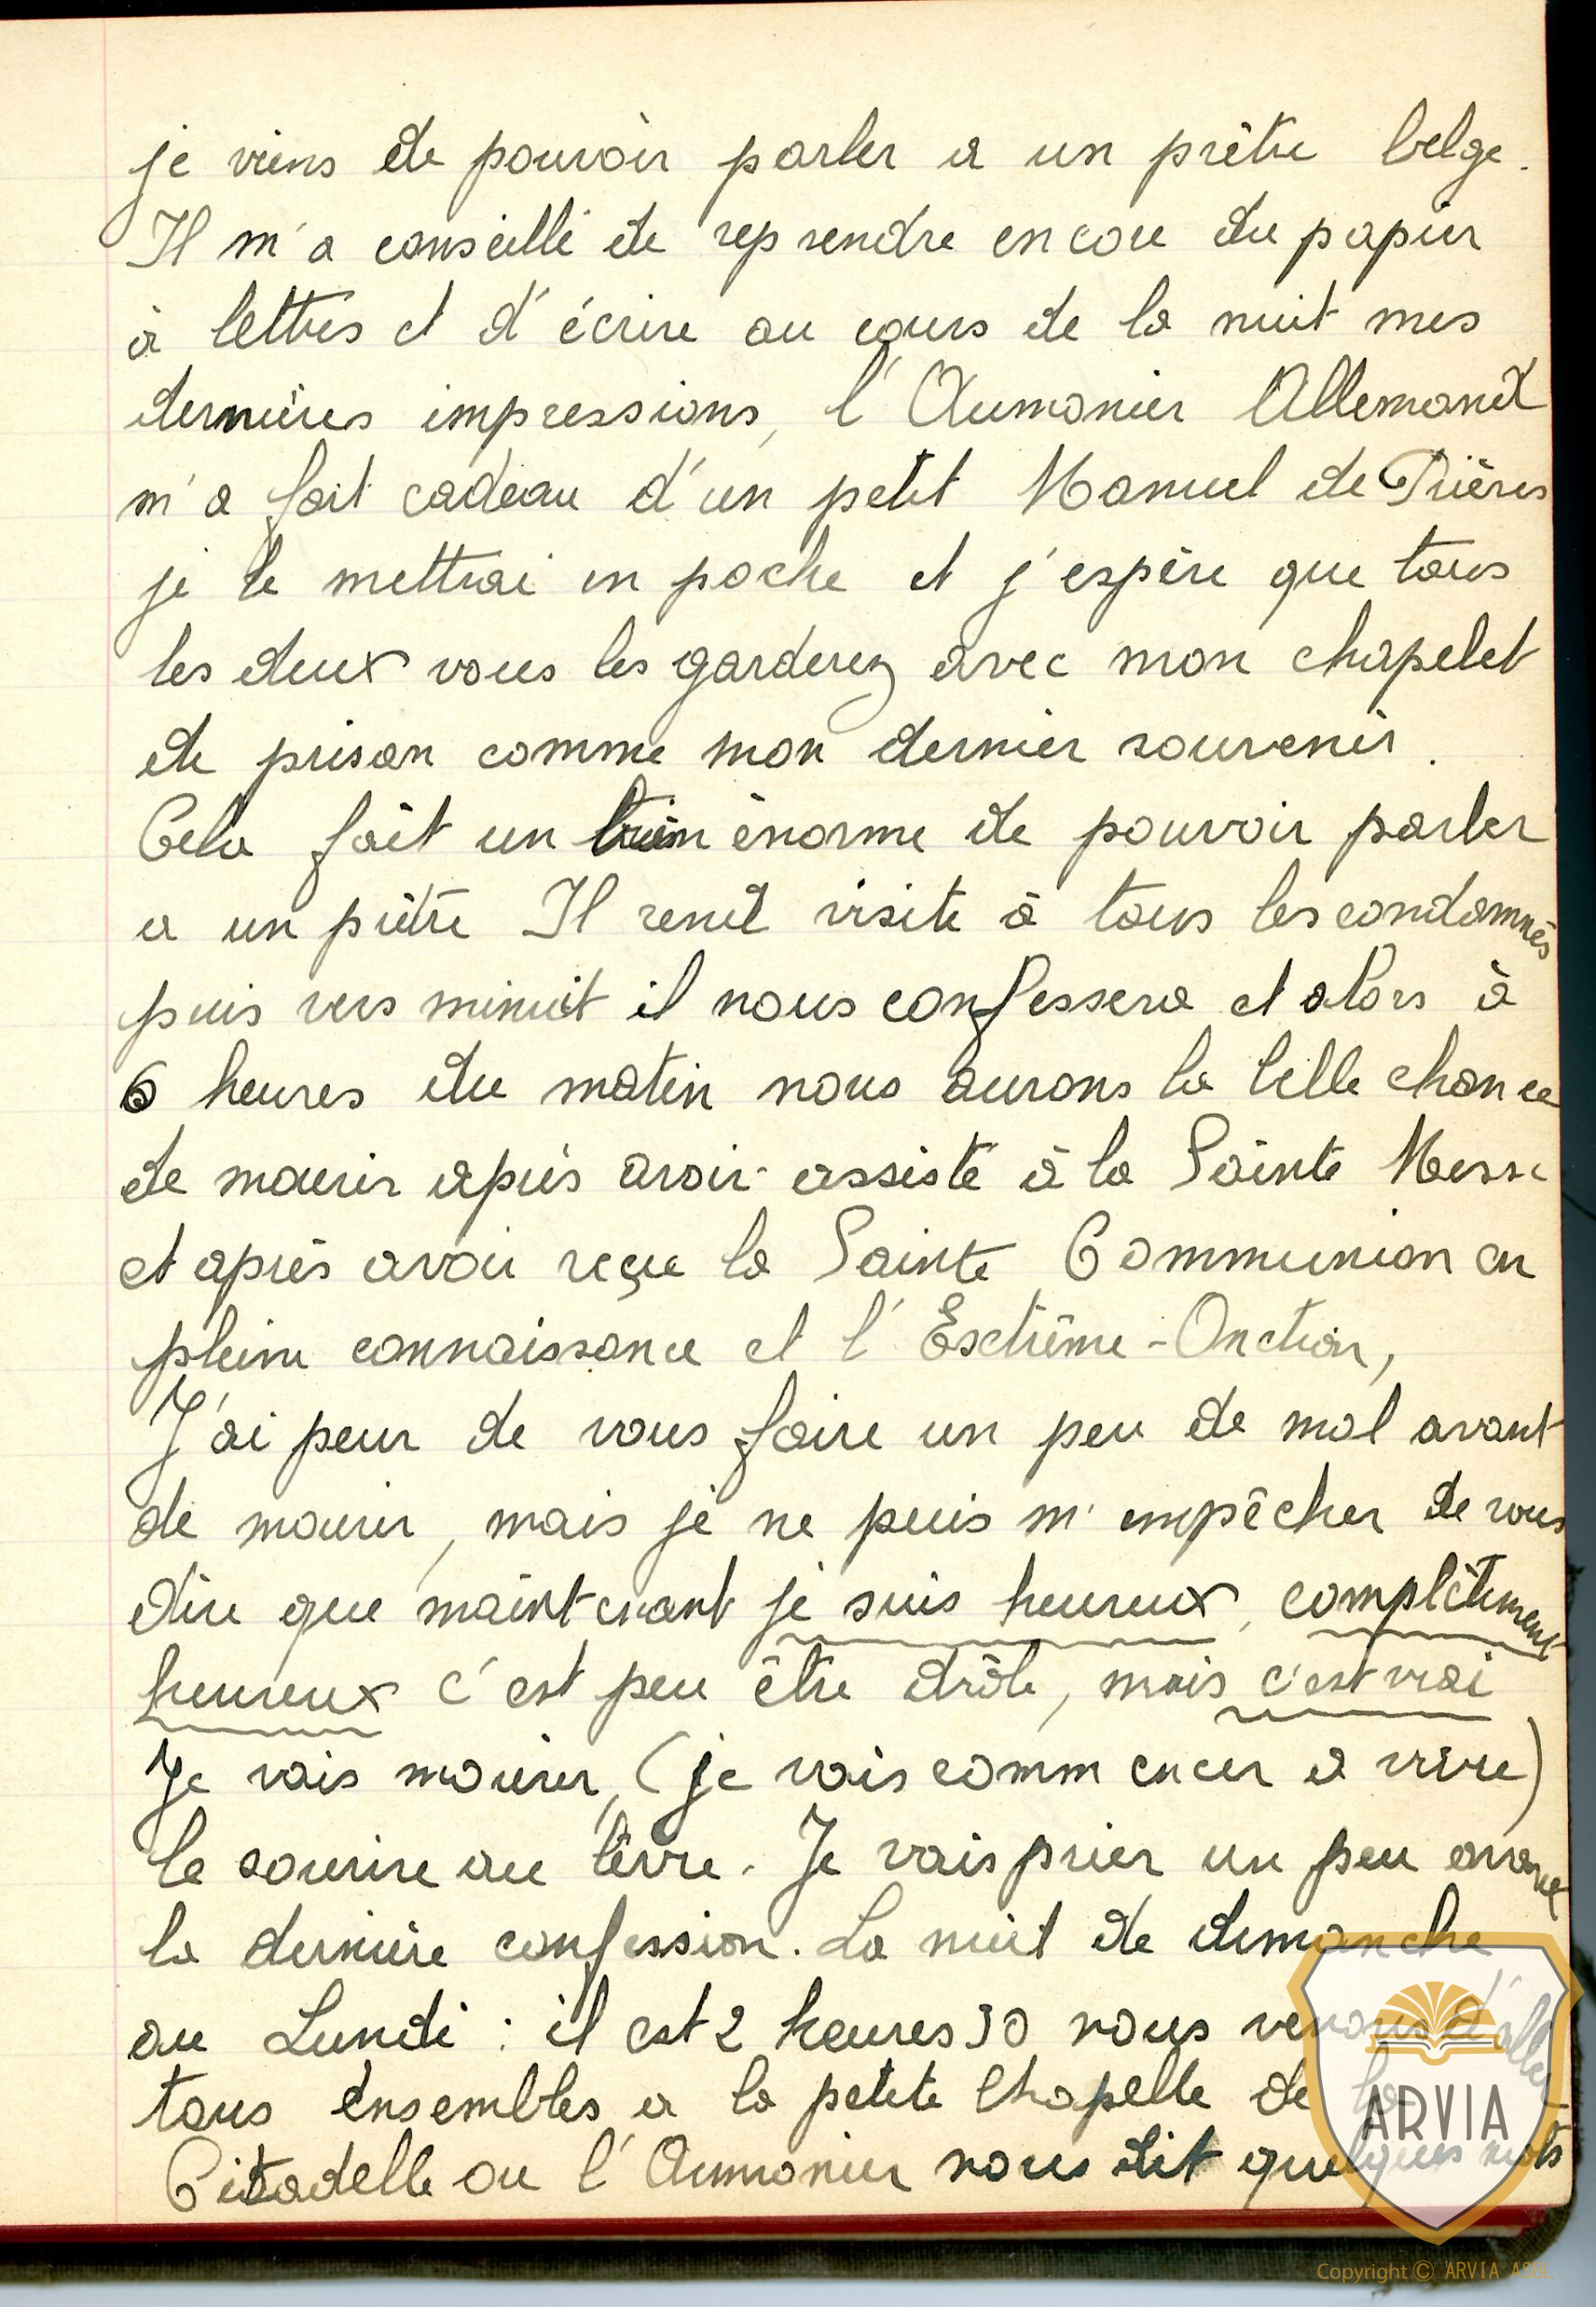 je viens de pouvoir parler a un prêtre belge.
Il m'a conseillé de reprendre encore du papier
à lettres et d'écrire au cours de la nuit mes
dernières impressions, l'Aumonier Allemand
m'a fait cadeau d'un petit Manuel de Prières
je le mettrai en poche et j'espère que tous
les deux vous les garderez avec mon chapelet
de prison comme mon dernier souvenir.
Cela fait un bien énorme de pouvoir parler
a un prêtre Il rend visite à tous les condamnés
puis vers minuit il nous confessera et alors à
6 heures du matin nous aurons la belle chance
de mourir après avoir assisté à la Sainte Messe
et après avoir reçue la Sainte Communion en
pleine connaissance et l'Esctrême-Onction,
J'ai peur de vous faire un peu de mal avant
de mourir, mais je ne puis m'empêcher de vous
dire que maintenant je suis heureux, complètement
heureux c'est peu être drôle, mais c'est vrai
Je vais mourir, (je vais commencer a vivre)
le sourire au lèvre. Je vais prier un peu avant
la dernière confession. La nuit de dimanche
au Lundi : il est 2 heures 30 nous venons d'aller
tous ensembles a la petite Chapelle de la
Citadelle ou l'Aumonier nous dit quelques mots
ARVIA
Copyright © ARVIA ASBL